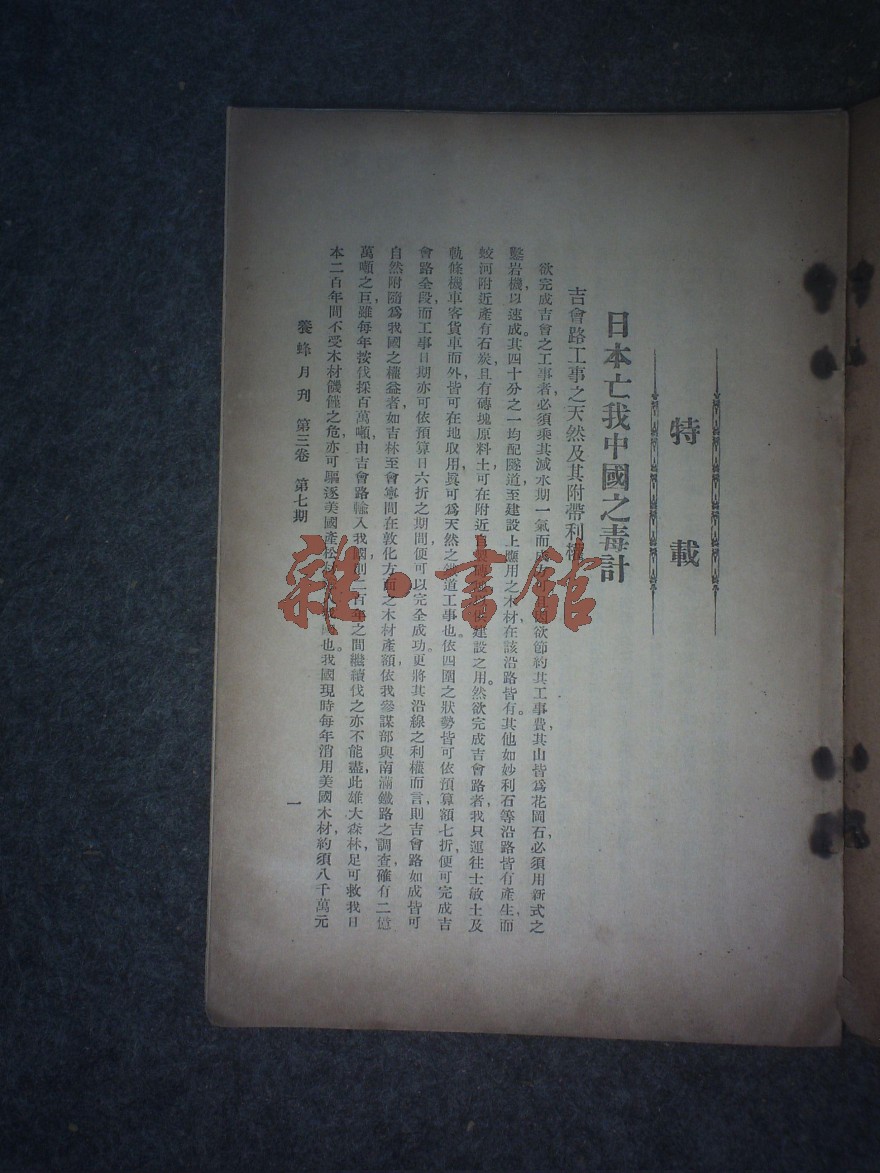 特載
日本亡我中國之毒計
吉會路工事之天然及其附帶利權
欲完成吉會之工事者,必須乘其減水期一氣而成欲節約其工事費,其山皆爲花岡石,必須用新式之
鑿岩機,以速成。其四十分之一均配隧道,至建設上應用之木材在該沿路皆有。其他如妙利石等沿路皆有產生,而
蛟河附近產有石炭,且有磚塊原料土,可在附近建設之用。然欲完成吉會路者,我只運往士敏土及
軌條機車客貨車而外,皆可在地取用,眞可爲天然之鐵道工事也。依四圍之狀勢皆可依預算額七折,便可完成吉
會路全段,而工事日期亦可依預算日六折之期間,便可以完全成功。更將其沿線之利權而言,則吉會路如成皆可
自然附隨爲我國之權益者,如吉林至會寧間在敦化方面之木材產額,依我參謀部與南滿鐵路之調查,確有二億
萬噸之巨,雖每年按伐採百萬噸,由吉會路輸入我國,則二百年之間繼續伐之亦不能盡,此雄大森林,足可救我日
本二百年間不受木材饑饉之危,亦可驅逐美國產松也。我國現時每年消用美國木材,約須八千萬元
養蜂月刊 第三卷 第七期
一
雜·書館